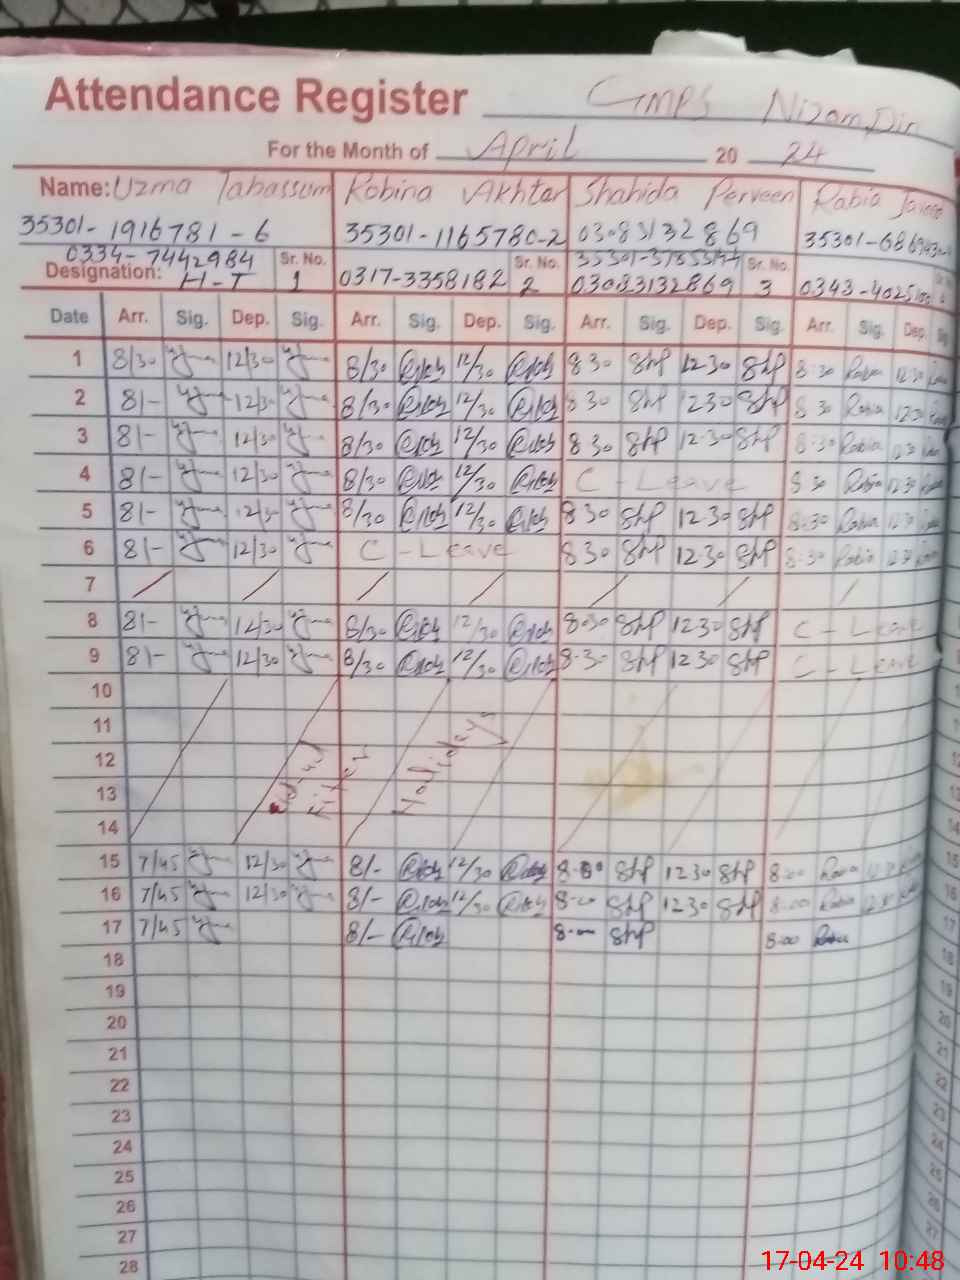 Attendance Register GMPS Nizam Din
For the Month of April 20 24
Name: Uzma Tabassum Robina Akhtar Shahida Perveen Rabia
35301-1916781-6 35301-1165780-2 03083132869
0334-7442984
Designation: H-T Sr. No. 1 0317-3358182 Sr. No. 2 03083132869 Sr. No. 3
Date Arr. Sig. Dep. Sig. Arr. Sig. Dep. Sig. Arr. Sig. Dep. Sig. Arr. Sig. Dep. Sig
1 8/30 12/30 8/30 12/30 8 30 ShP 12 30 ShP 8:30 Rabia 12 30
2 8/- 12/30 8/30 12/30 8 30 ShP 12 30 ShP 8 30 Rabia 12 30
3 8/- 12/30 8/30 12/30 8 30 ShP 12-30 ShP 8:30 Rabia 12 30
4 8/- 12/30 8/30 12/30 C - Leave 8 30 Rabia 12 30
5 8/- 12/30 8/30 12/30 8 30 ShP 12-30 ShP 8:30 Rabia 12 30
6 8/- 12/30 C - Leave 8 30 ShP 12 30 ShP 8:30 Rabia 12 30
7
8 8/- 12/30 8/30 12/30 8:30 ShP 12 30 ShP C - Leave
9 8/- 12/30 8/30 12/30 8-30 ShP 12 30 ShP C - Leave
10
11
12 Eid-ul Fiter Holidays
13
14
15 7/45 12/30 8/- 12/30 8-00 ShP 12 30 ShP 8:00 Rabia
16 7/45 12/30 8/- 12/30 8-00 ShP 12 30 ShP 8:00 Rabia
17 7/45 8/- 8-00 ShP 8:00 Rabia
18
19
20
21
22
23
24
25
26
27
28
17-04-24 10:48